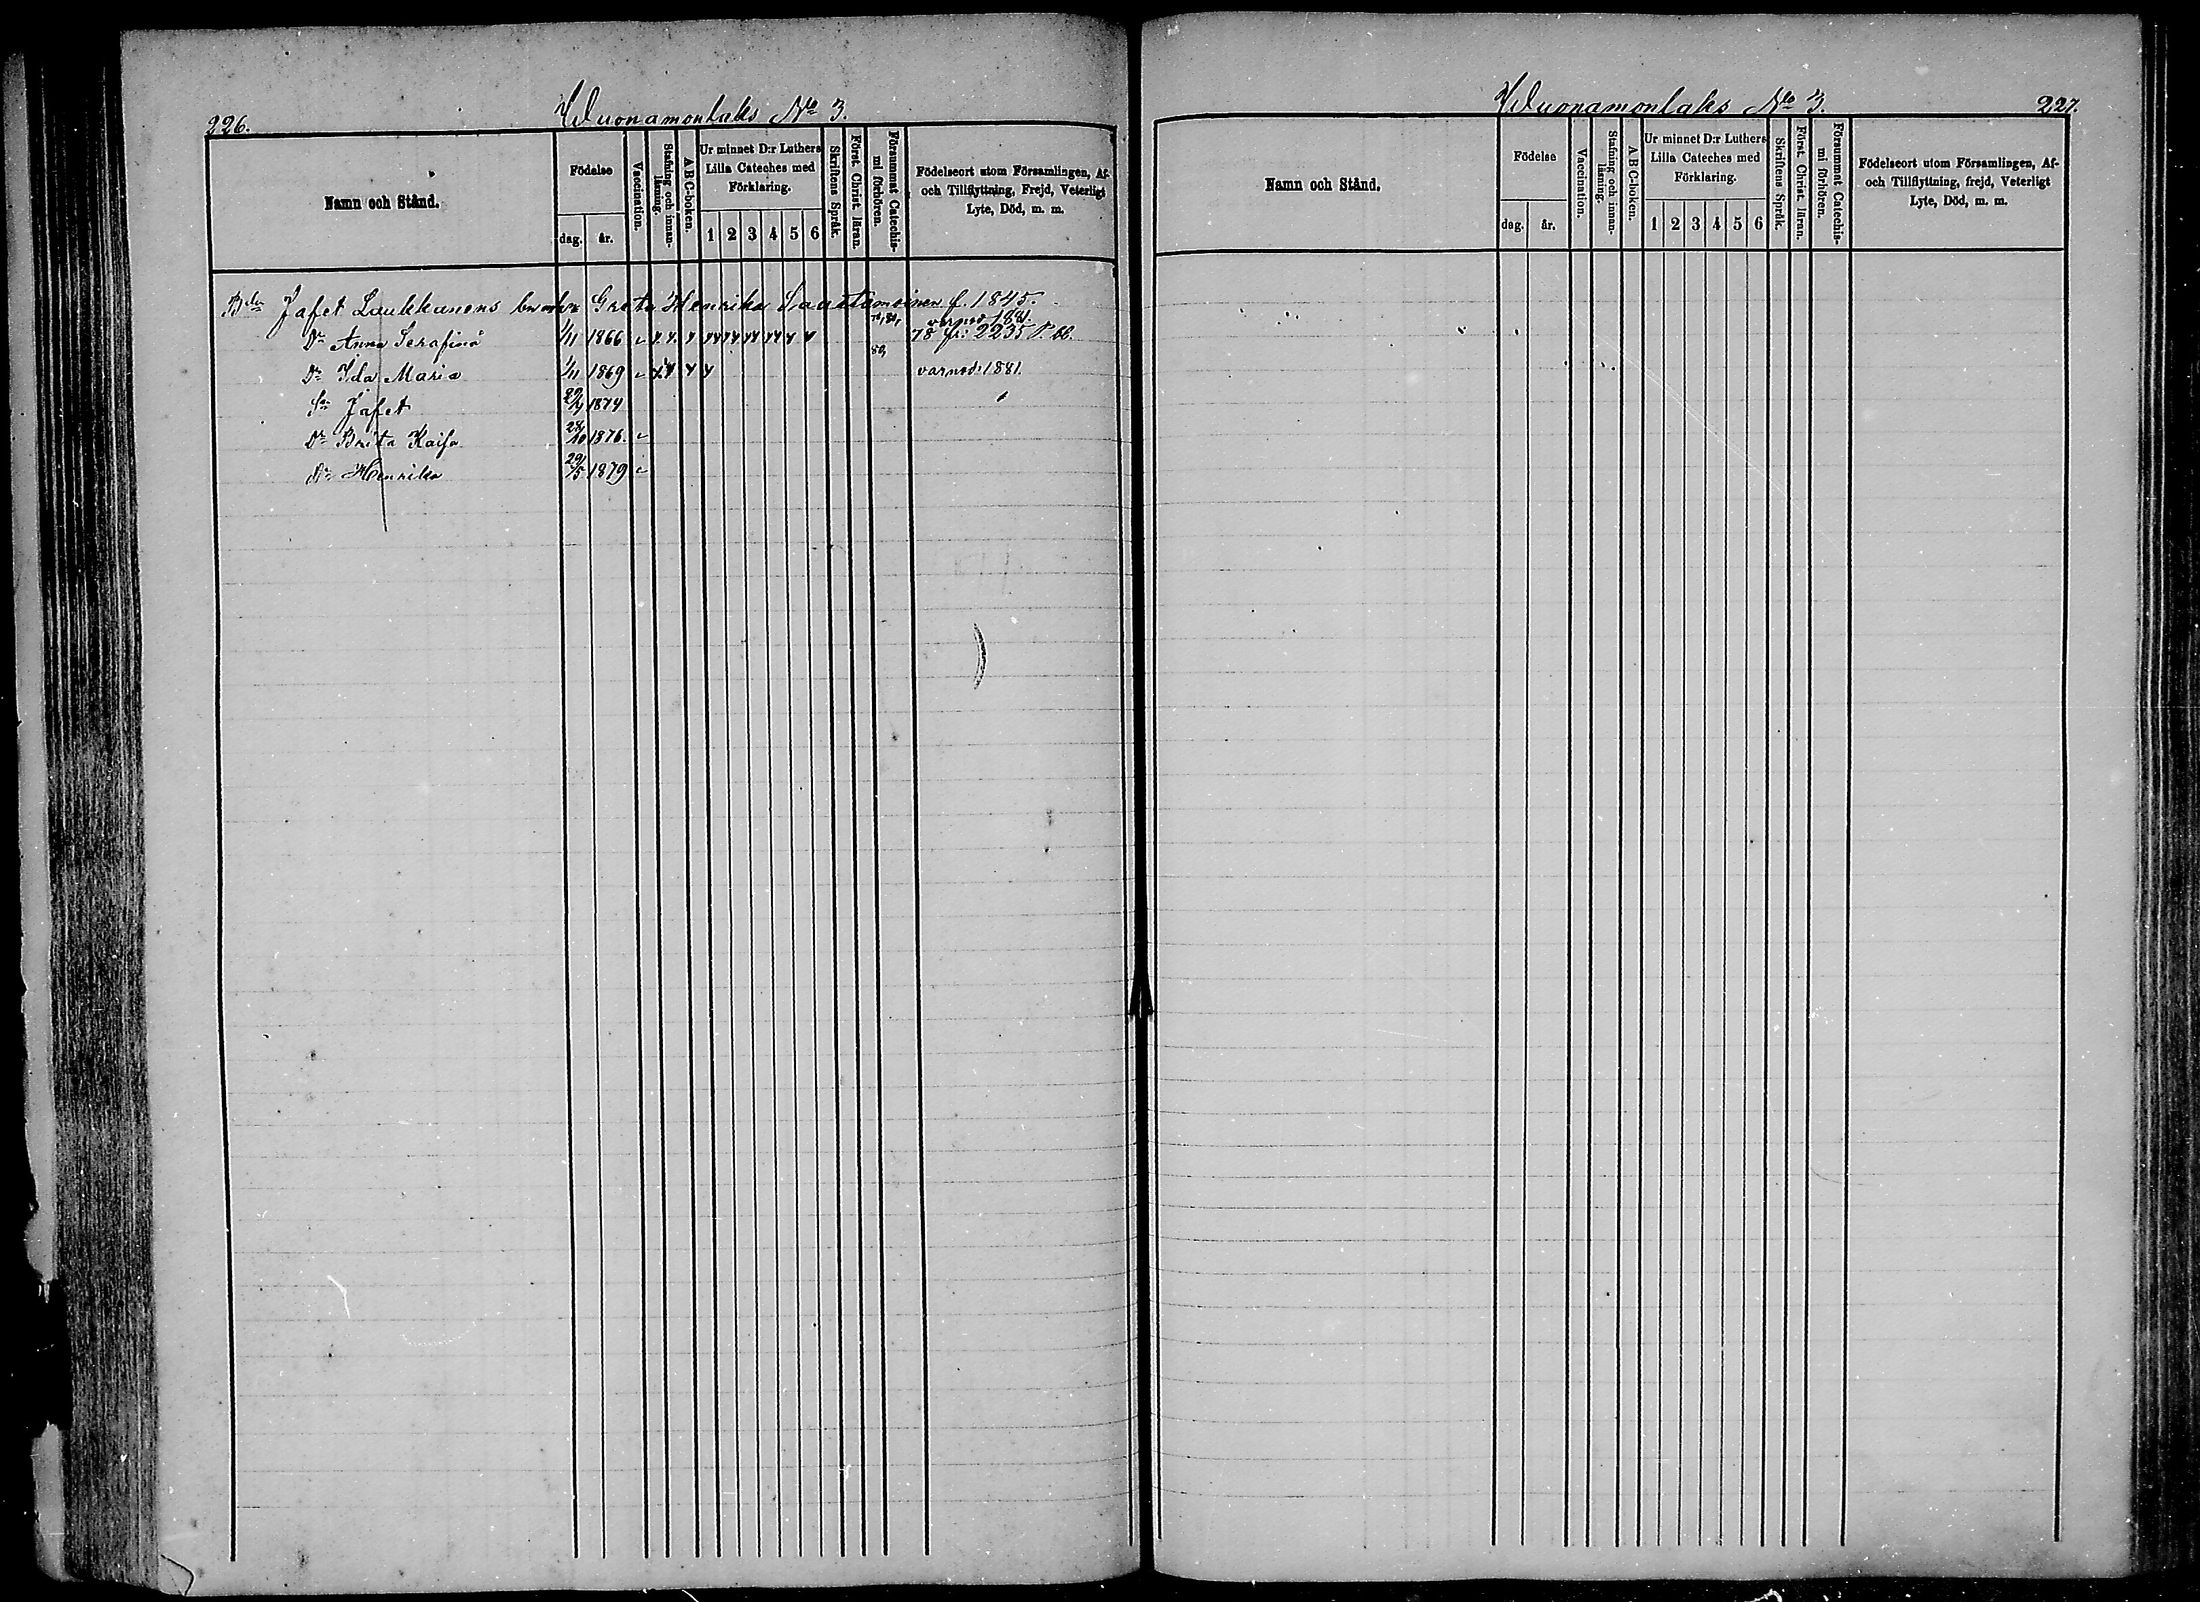 226. Wuonamonlaks No 3.
Namn och Stånd.
Födelse
dag. år.
Vaccination.
Stafning och innan-läsning.
A B C-boken.
Ur minnet D:r Luthers
Lilla Cateches med
Förklaring.
1 2 3 4 5 6
Skriftens Språk.
Först. Christ. läran.
Försummat Catechis-
mi förhören.
Födelseort utom Församlingen, Af-
och Tillflyttning, Frejd, Veterligt
Lyte, Död, m. m.
Jafet Laukkanens Greta Henrika Saastamoinen f. 1845.
79, 80, varnad 1881.
Dr Anna Serafina 1/11 1866 78 fr: 2235 P. bb.
80,
Dr Ida Maria 1/11 1869 varnad 1881
Sn Jafet 1874
Dr Brita Kaisa 28/10 1876.
Dr Henrika 29/5 1879
Wuonamonlaks No 3. 227.
Namn och Stånd.
Födelse
dag. år.
Vaccination.
Stafning och innan-läsning.
A B C-boken.
Ur minnet D:r Luthers
Lilla Cateches med
Förklaring.
1 2 3 4 5 6
Skriftens Språk.
Först. Christ. läran.
Försummat Catechis-
mi förhören.
Födelseort utom Församlingen, Af-
och Tillflyttning, frejd, Veterligt
Lyte, Död, m. m.